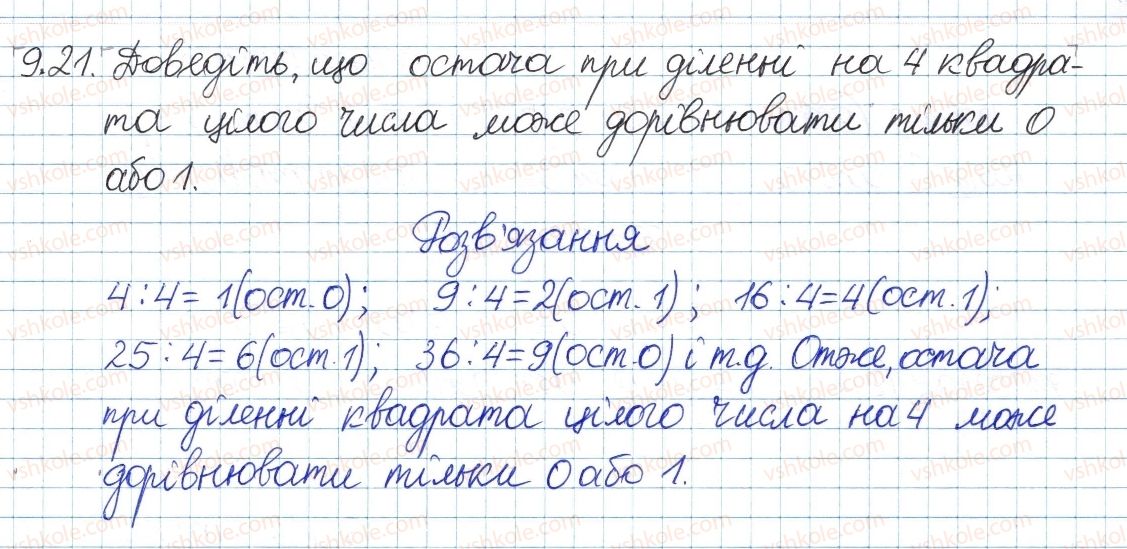 9.21. Доведіть, що остача при діленні на 4 квадра-
та цілого числа може дорівнювати тільки 0
або 1.
Розв'язання
4:4=1(ост.0); 9:4=2(ост.1); 16:4=4(ост.1);
25:4=6(ост.1); 36:4=9(ост.0) і т.д. Отже, остача
при діленні квадрата цілого числа на 4 може
дорівнювати тільки 0 або 1.